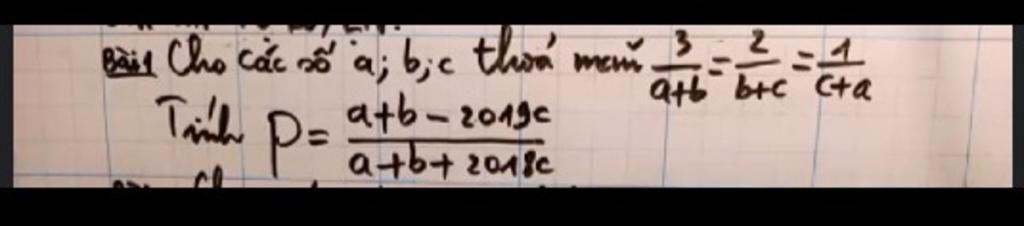 Bài 1 Cho các số a; b; c thoả mãn 3/(a+b) = 2/(b+c) = 1/(c+a)
Tính P = (a+b-2019c)/(a+b+2018c)